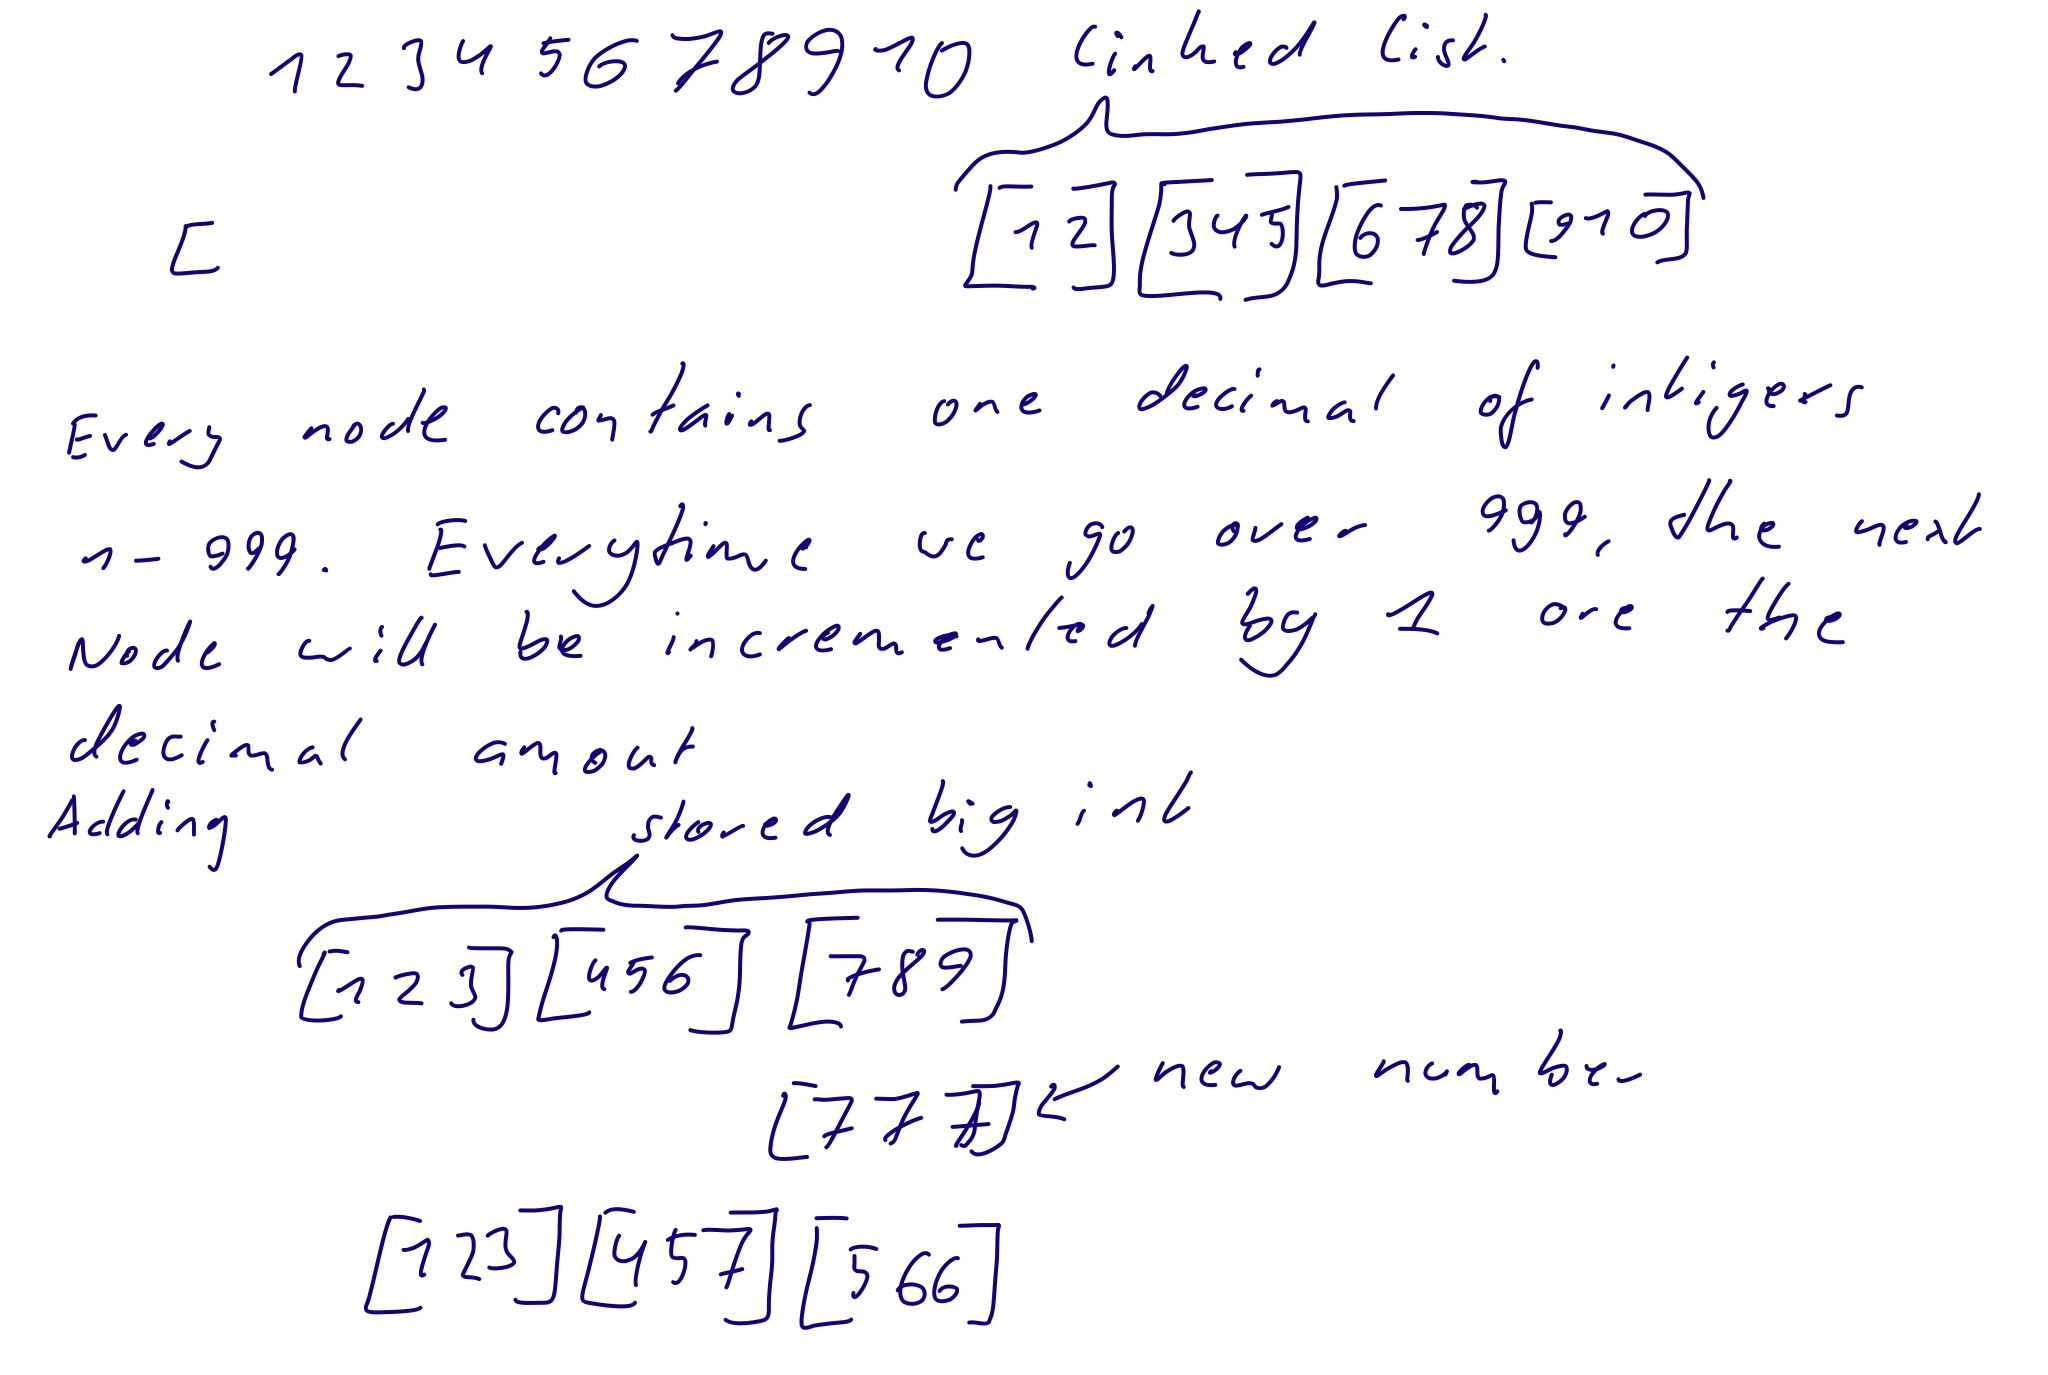 1 2 3 4 5 6 7 8 9 10 Linked list.
[
[12] [345] [678] [910]
Every node contains one decimal of intigers
1-999. Everytime we go over 999, the next
Node will be incremented by 1 ore the
decimal amout
Adding stored big int
[123] [456] [789]
[777] ← new number
[123] [457] [566]